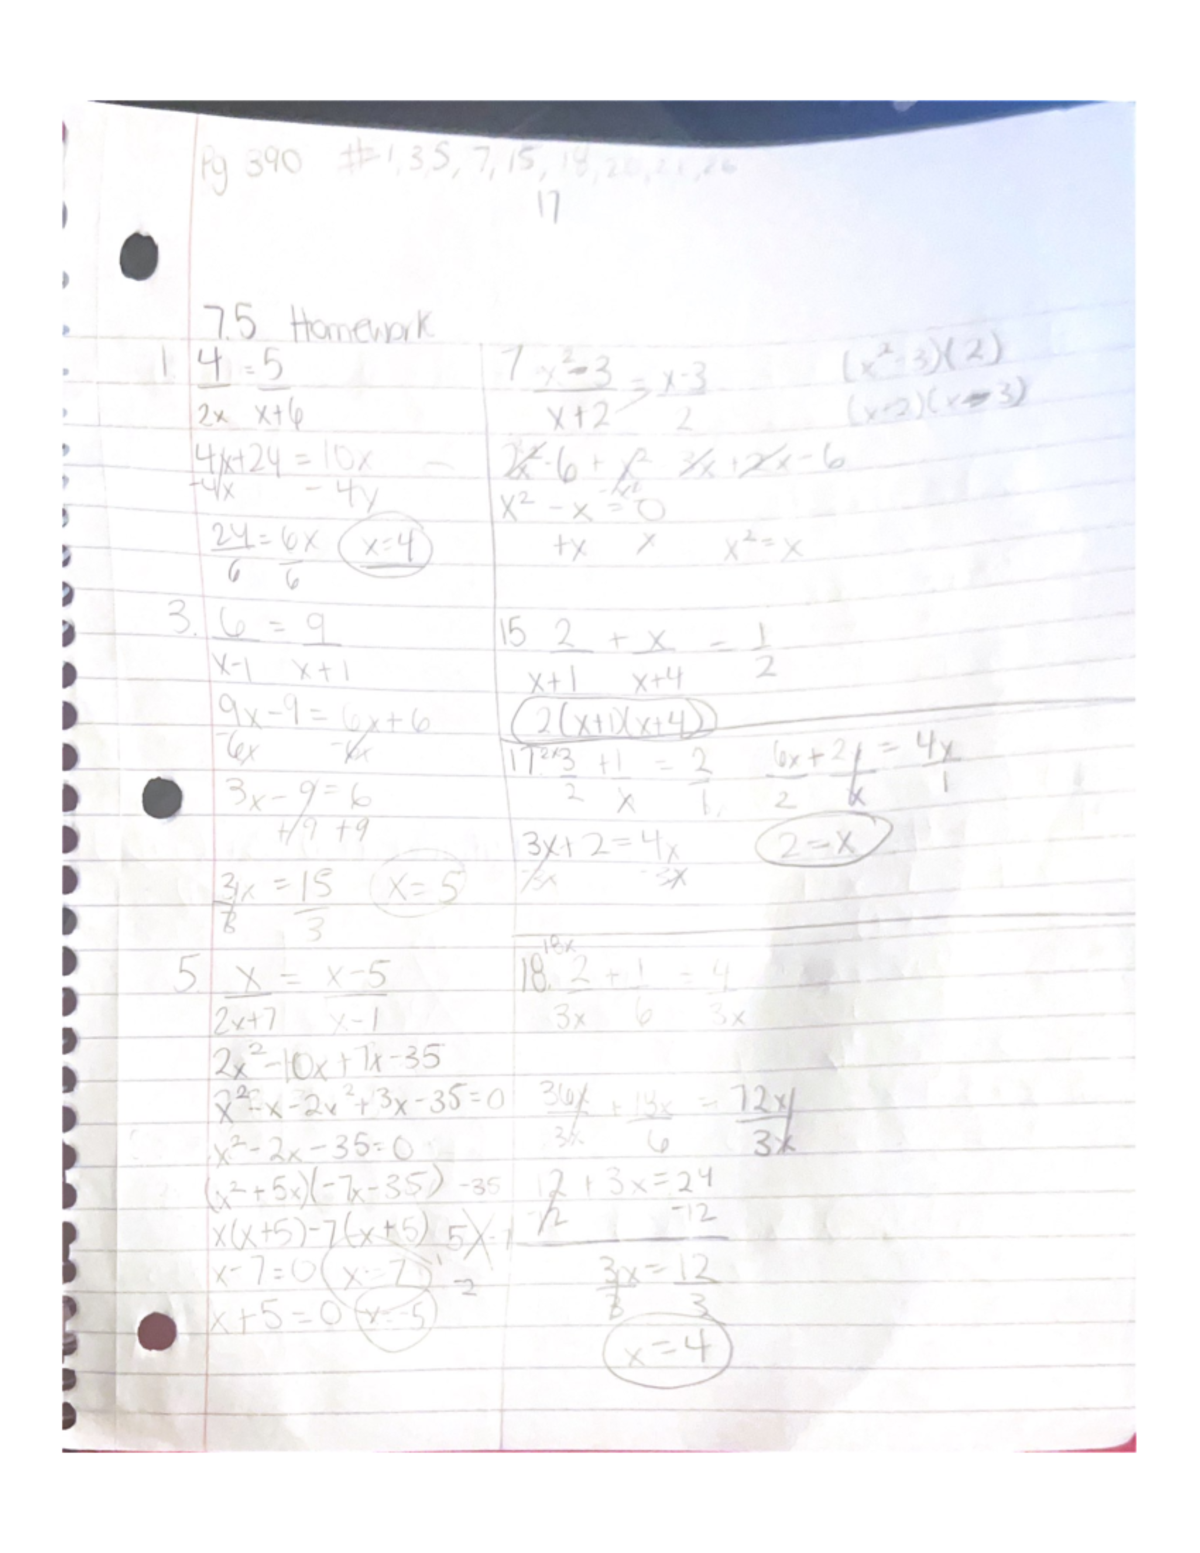 Pg 390 #1,3,5,7,15,18,20,21,26
17
7.5 Homework
1. 4/2x = 5/x+6
4x+24 = 10x
-4x -4x
24/6 = 6x/6 x=4
3. 6/x-1 = 9/x+1
9x-9 = 6x+6
-6x -6x
3x-9=6
+9 +9
3x/3 = 15/3 x=5
5. x/2x+7 = x-5/x-1
2x²-10x+7x-35
x²-x-2x²+3x-35=0
x²-2x-35=0
(x²+5x)(-7x-35) -35
x(x+5)-7(x+5) 5 -7
-2
x-7=0 x=7
x+5=0 x=-5
7 x²-3/x+2 = x-3/2
(x²-3)(2)
(x+2)(x-3)
2x²-6+x² 3x+2x-6
-x²
x²-x=0
+x x x²=x
15 2/x+1 + x/x+4 = 1/2
2(x+1)(x+4)
17. 2x 3/2 + 1/x = 2/1
6x/2 + 2x/x = 4x/1
3x+2=4x
-3x -3x
2=x
18. 18x 2/3x + 1/6 = 4/3x
36x/3x + 18x/6 = 72x/3x
12+3x=24
-12 -12
3x/3 = 12/3
x=4